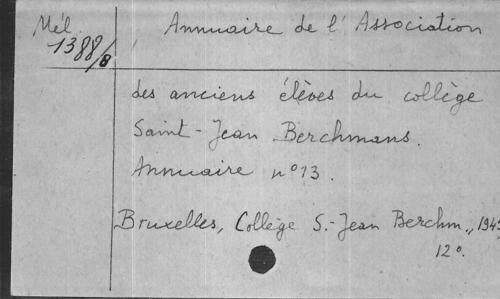 Mél.
1388/8
Annuaire de l'Association
des anciens élèves du collège
Saint-Jean Berchmans.
Annuaire n° 13.
Bruxelles, Collège S.-Jean Berchm.,
12°.